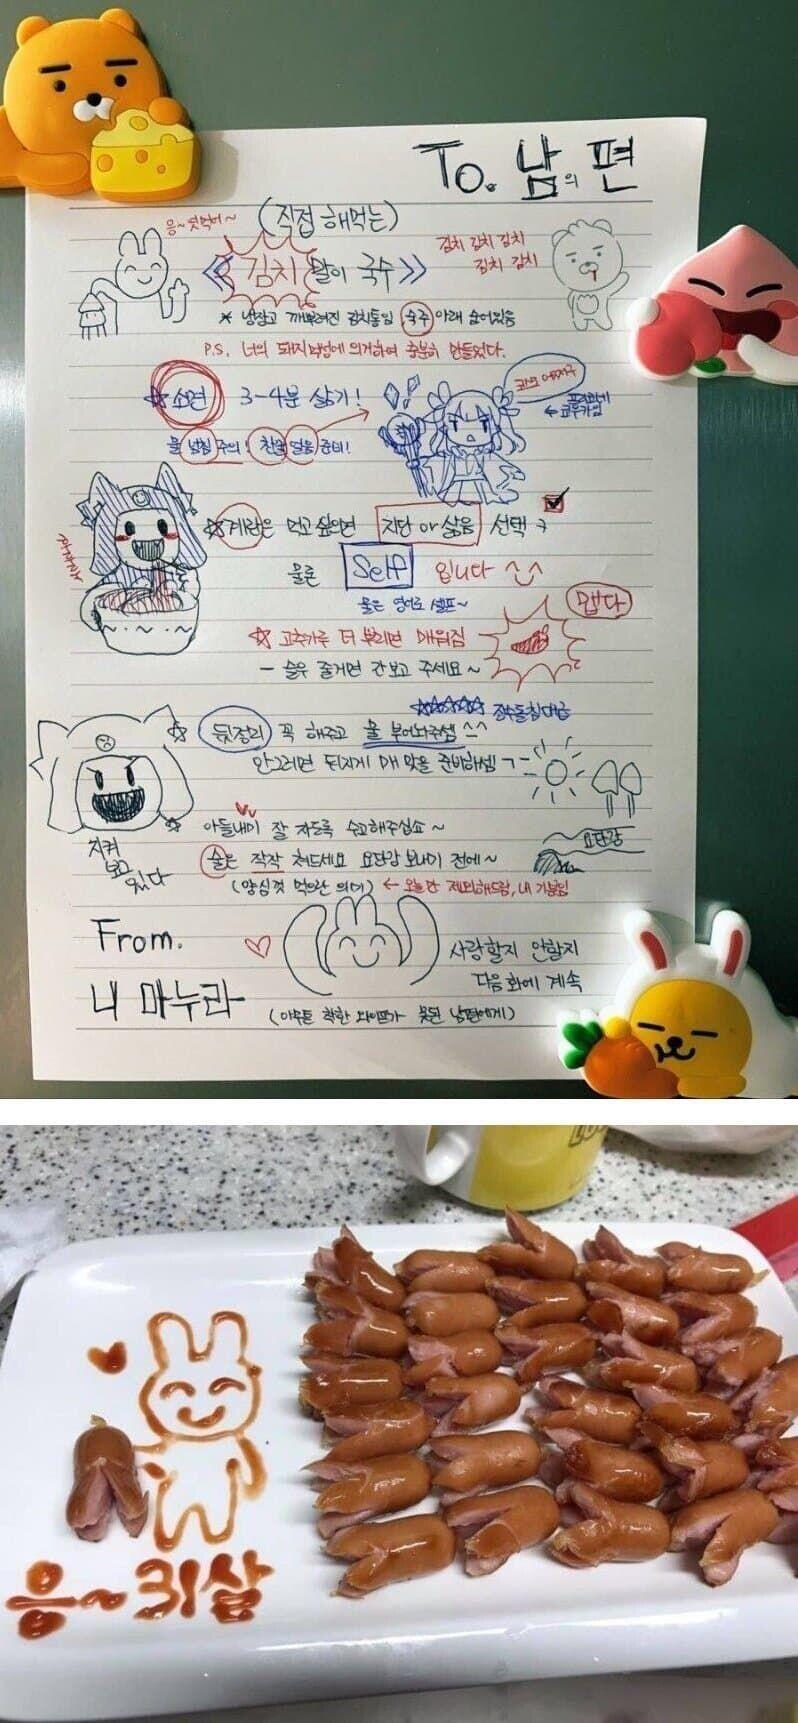 To. 남의 편
(직접 해먹는)
응~ 쳐먹어~
《김치말이 국수》
김치 김치 김치
김치 김치
* 냉장고 깨부어진 김치통임 숙주 아래 숨어있음
P.S. 너의 돼지력에 의거하여 충분히 만들었다.
☆ 소면 3-4분 삶기!
물 넘침 주의! 찬물 얼음 준비!
☆계란은 먹고 싶으면 지단 or 삶음 선택
물론 Self 입니다 ^^
물은 영어로 셀프~
맵다
☆ 고춧가루 더 뿌리면 매워짐
- 술은 줄거면 간보고 주세요~
☆☆☆☆☆
☆ 뒷정리 꼭 해주고 물 부어놔주셈 ^^
안그러면 뒤지게 매 맞을 준비하셈ㄱ-
☆ 아들내미 잘 자도록 수고해주십쇼~
지켜
보고
있다
요단강
술은 작작 쳐드세요 요단강 보내기 전에~
(양심껏 먹으란 의미) ← 오늘만 제외해드림, 내 기분임
From.
니 마누라
사랑할지 안할지
다음화에 계속
(아무튼 착한 와이프가 못된 남편에게)
응~ 31살